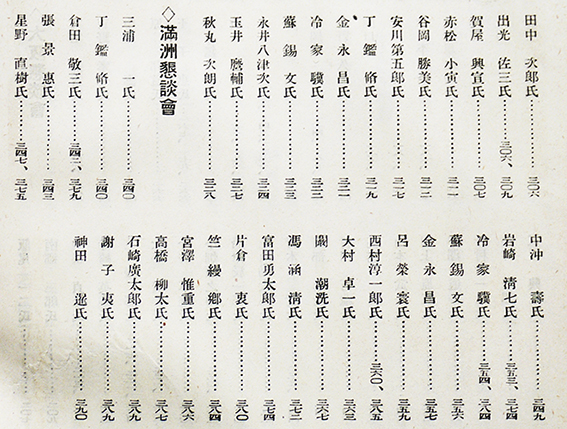 田中 次郎氏………三〇六
出光 佐三氏………三〇六、三〇九
賀屋 興宣氏………三〇七
赤松 小寅氏………三一一
谷岡 勝美氏………三一二
安川第五郎氏………三一七
丁 鑑脩氏………三一九
金 永昌氏………三二一
冷 家驥氏………三二二
蘇 錫文氏………三二三
永井八津次氏………三二四
玉井 磨輔氏………三二七
秋丸 次朗氏………三二八
◇滿洲懇談會
三浦 一氏………三四〇
丁 鑑脩氏………三四〇
倉田 敬三氏………三四二、三七九
張 景惠氏………三四三
星野 直樹氏………三四七、三七五
中沖 壽氏………三四九
岩崎 清七氏………三五三、三七四
冷 家驥氏………三五四、三八四
蘇 錫文氏………三五六
金 永昌氏………三五七
呂 榮寰氏………三五九
西村淳一郎氏………三六〇、三八五
大村 卓一氏………三六三
閻 潮洗氏………三六七
馮 涵清氏………三七二
富田勇太郎氏………三七四
片倉 衷氏………三八〇
竺 縵鄉氏………三八四
宮澤 惟重氏………三八六
高橋 柳太氏………三八七
石崎廣太郎氏………三八九
謝 子夷氏………三八九
神田 暹氏………三九〇